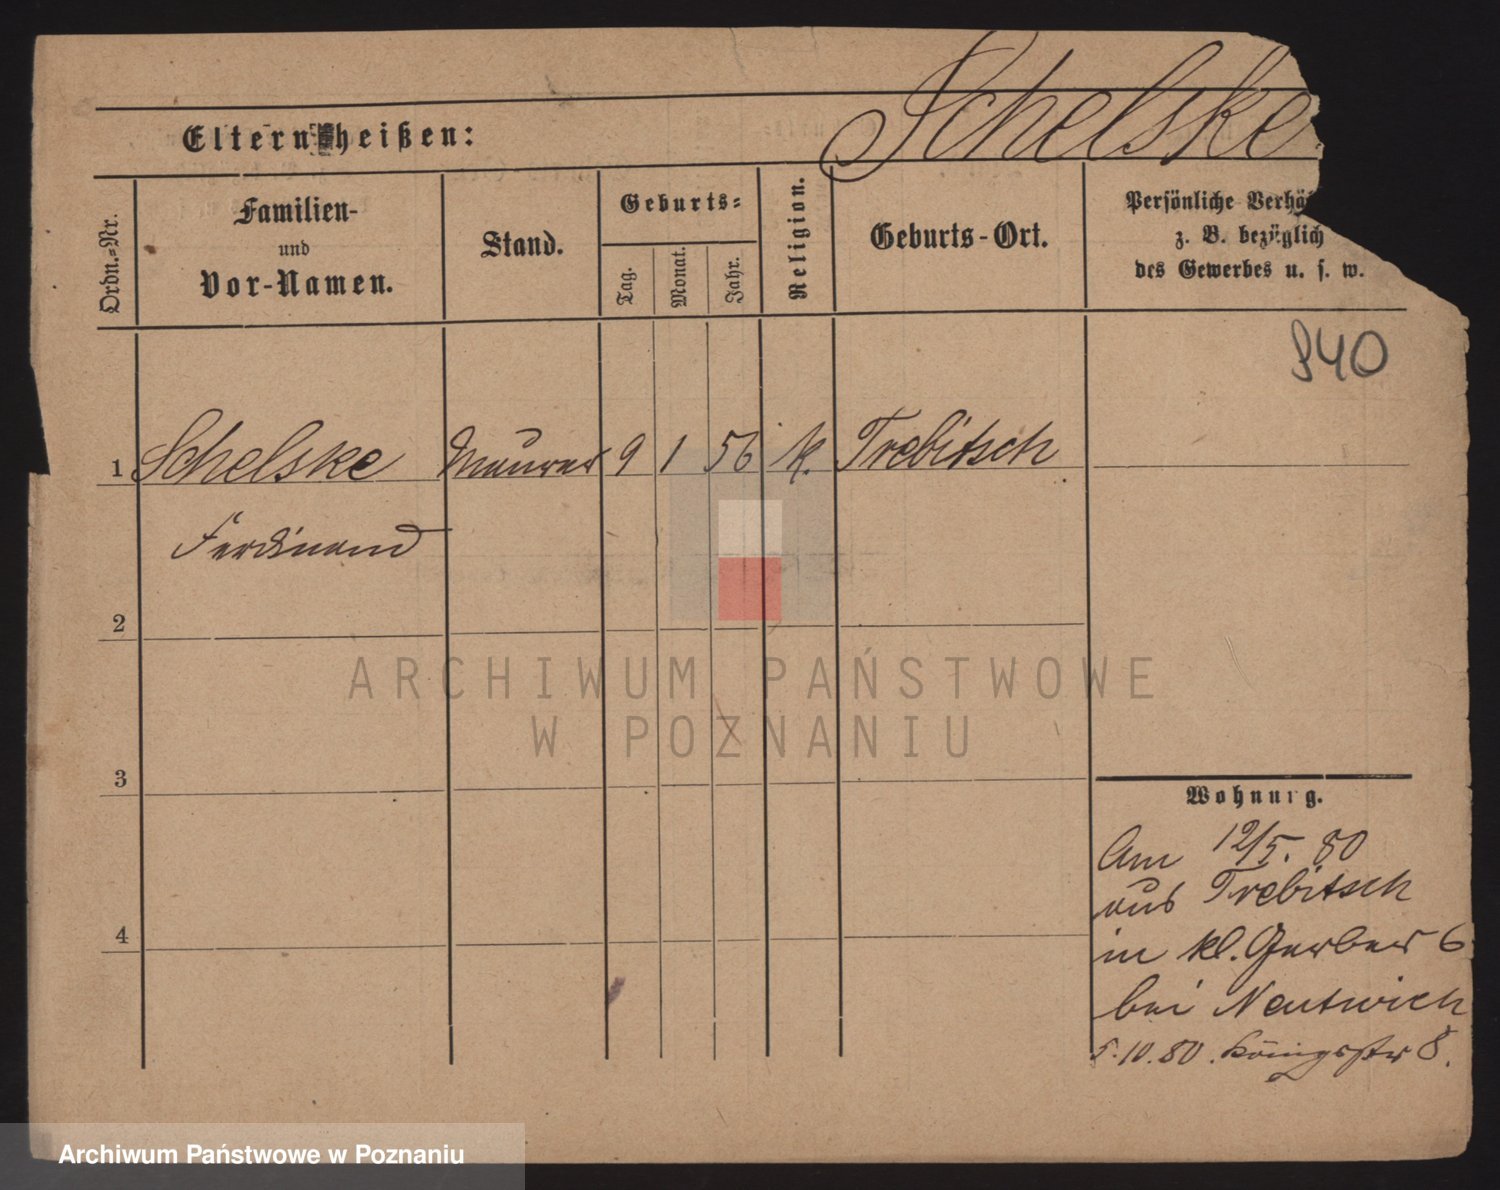 Schelske
Eltern heißen:
Ordn.-Nr.
Familien-
und
Vor-Namen.
Stand.
Geburts-
Tag.
Monat.
Jahr.
Religion.
Geburts-Ort.
Persönliche Verhä
z. B. bezüglich
des Gewerbes u. s. w.
940
1 Schelske Maurer 9 1 56 k. Trebitsch
Ferdinand
2
3
4
Wohnung.
Am 12/5. 80
aus Trebitsch
in kl. Gerber 6
bei Nentwich
5.10.80. Königsstr 8.
ARCHIWUM PAŃSTWOWE
W POZNANIU
Archiwum Państwowe w Poznaniu